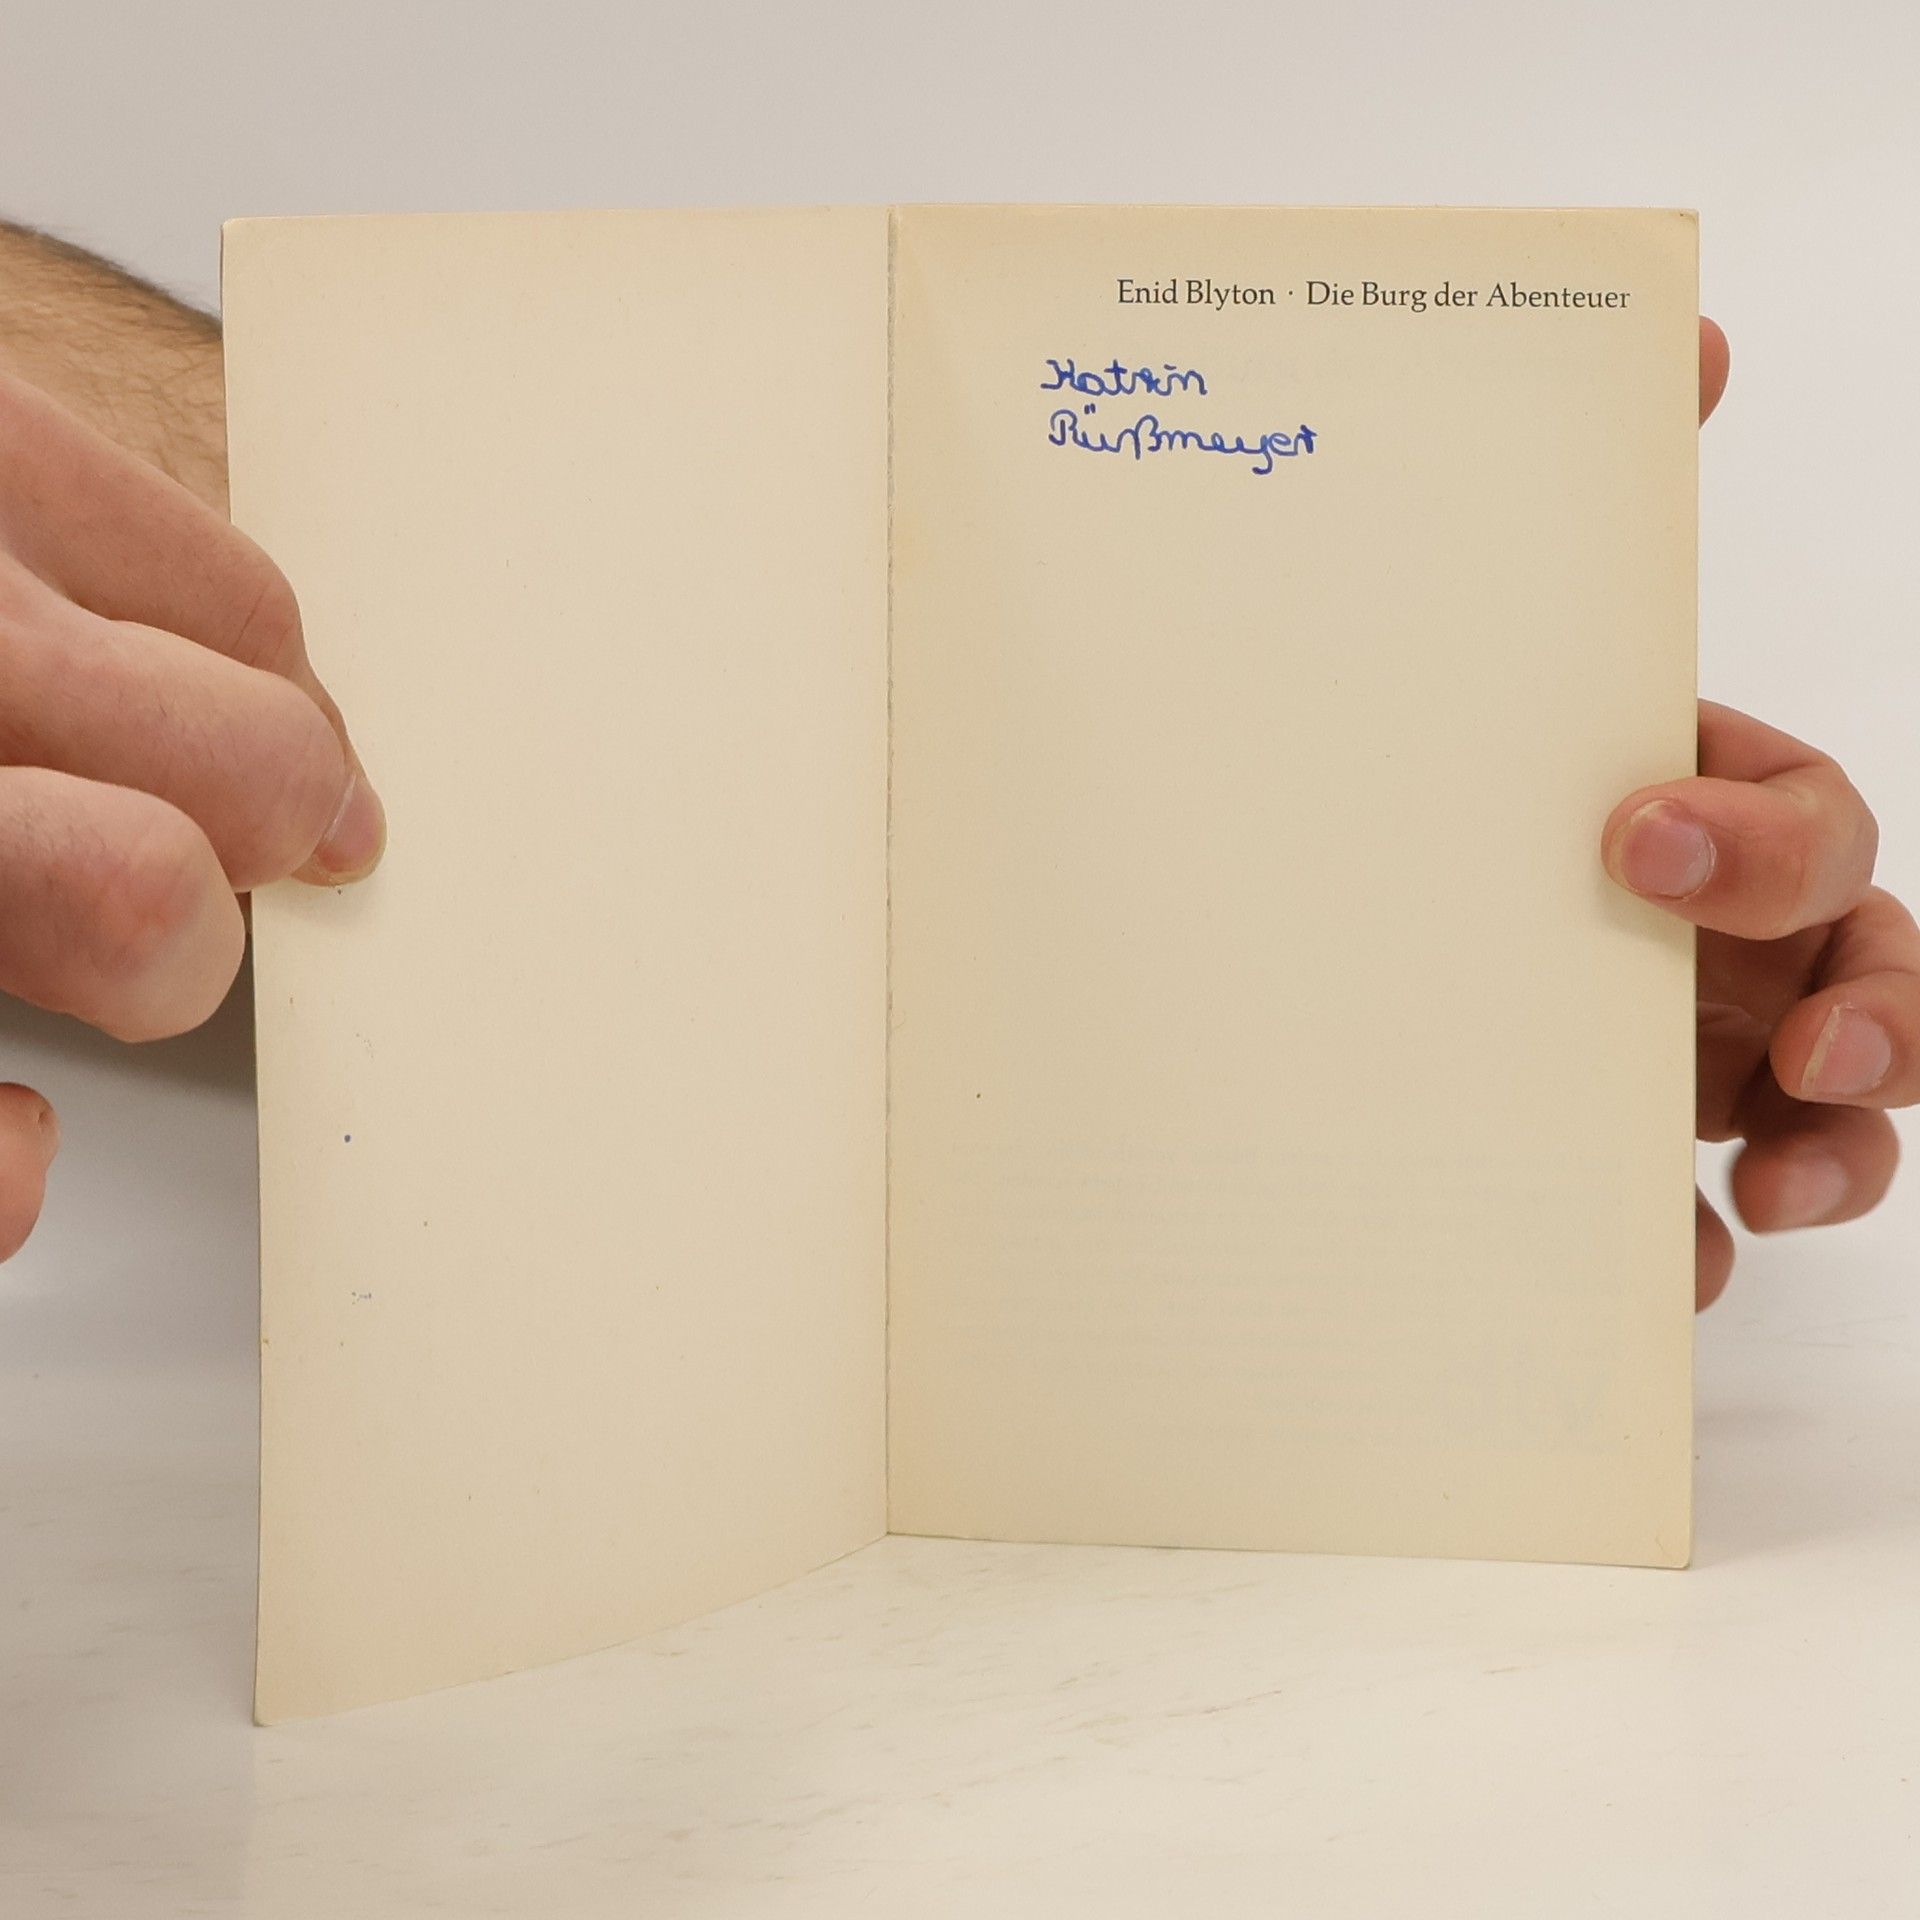 Enid Blyton · Die Burg der Abenteuer
Katrin
Rüßmeyer